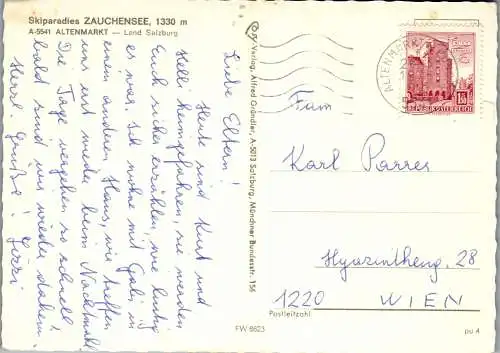 Skiparadies ZAUCHENSEE, 1330 m
A-5541 ALTENMARKT — Land Salzburg
Liebe Eltern!
Heute sind Kurt und
Helli heimgefahren, sie werden
Euch sicher erzählen, wie lustig
es war. Ich wohne mit Gabi in
einem anderen Haus, wir treffen
uns erst wieder beim Nachtmahl.
Die Tage vergehen so schnell!
bald sind wir wieder daheim.
Herzl. Grüße!
Verlag Alfred Gründler, A-5013 Salzburg, Münchner Bundesstr. 156
ALTENMARKT
REPUBLIK ÖSTERREICH
Fam
Karl Parres
Hyazintheng. 28
1220 WIEN
Postleitzahl
FW 8623
pu 4